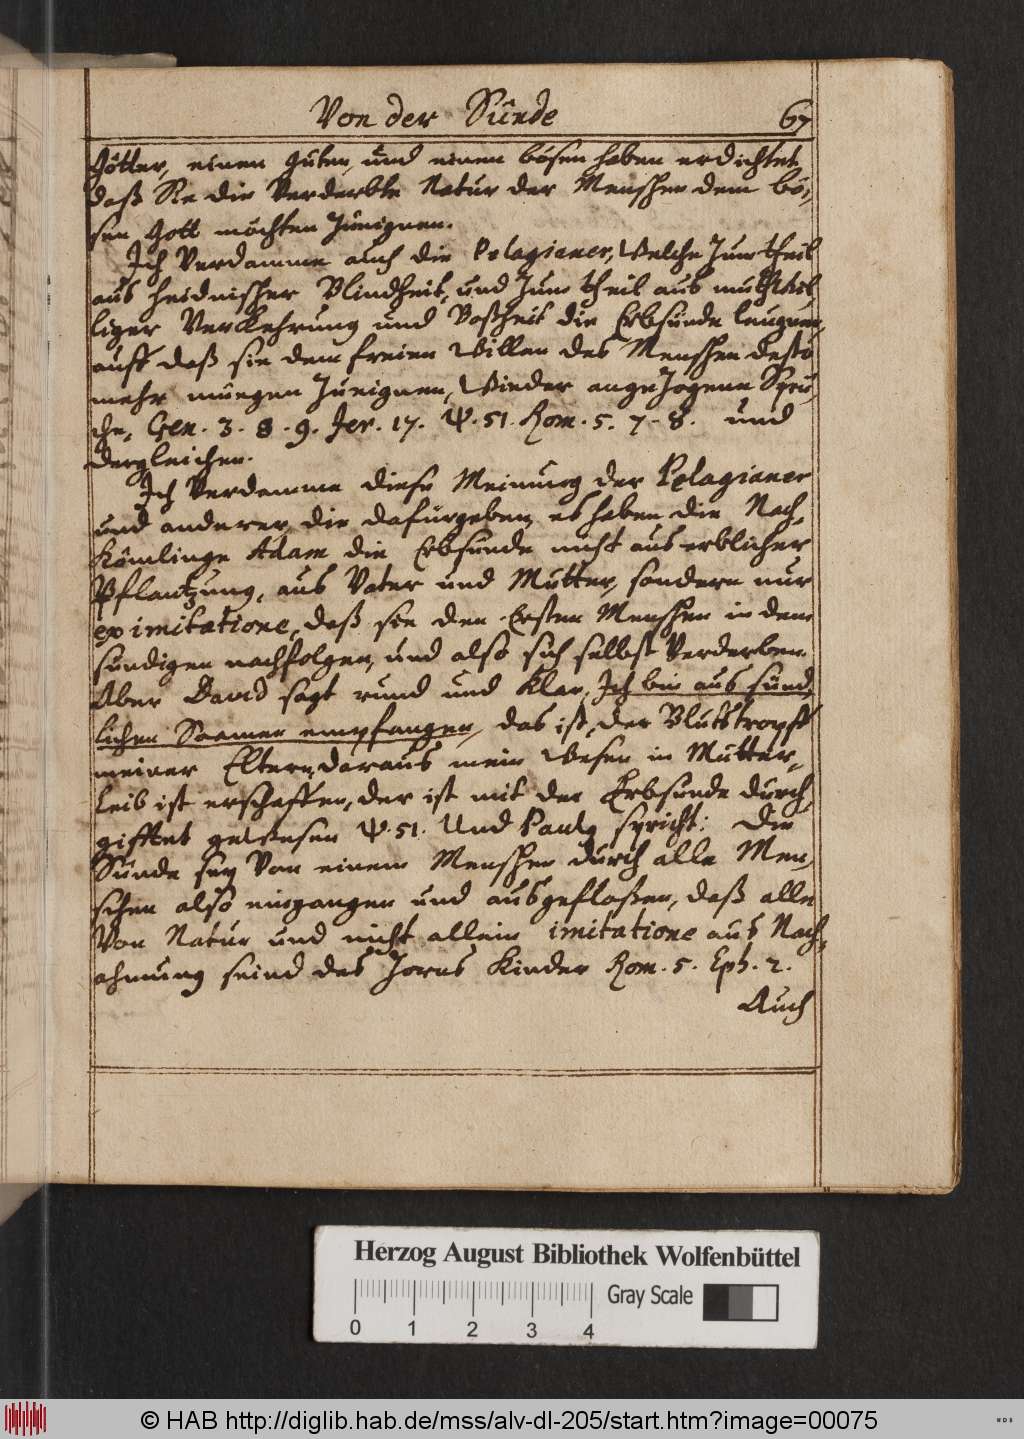 Von der Sünde 67
Götter, einen guten, und einen bösen haben erdichtet,
daß Sie die Verderbte Natur der Menschen dem bö-
sen Gott möchten Zueignen.
Ich Verdamme auch die Pelagianer, Welche Zum theil
aus heidnischer Blindheit, und Zum theil aus muthwil-
liger Verkehrung und Boßheit die Erbsünde leugnen,
auff daß sie dem freien Willen des Menschen desto
mehr mügen Zueignen, Wieder angeZogene Sprü-
che, Gen. 3. 8. 9. Jer. 17. Ψ. 51. Rom. 5. 7. 8. und
dergleichen.
Ich Verdamme diese Meinung der Pelagianer
und anderer, die dafürgeben, es haben die Nach-
kömlinge Adam die Erbsünde nicht aus erblicher
Pflantzung, aus Vater und Mutter, sondern nur
ex imitatione, daß sie den Ersten Menschen in dem
sündigen nachfolgen, und also sich selbst Verderben
Aber David sagt rund und klar, Ich bin aus sünd-
lichen Saamen empfangen, das ist, der Blutstropff
meiner Eltern, daraus mein Wesen in Mutter-
leib ist erschaffen, der ist mit der Erbsünde durch-
gifftet gewesen Ψ. 51. Und Paulus spricht: Die
Sünde sey Von einem Menschen durch alle Men-
schen also eingangen und ausgefloßen, daß alle
Von Natur und nicht allein imitatione aus Nach-
ahmung seind des Zorns Kinder Rom. 5. Eph. 2.
Auch
Herzog August Bibliothek Wolfenbüttel
Gray Scale
0 1 2 3 4
© HAB http://diglib.hab.de/mss/alv-dl-205/start.htm?image=00075